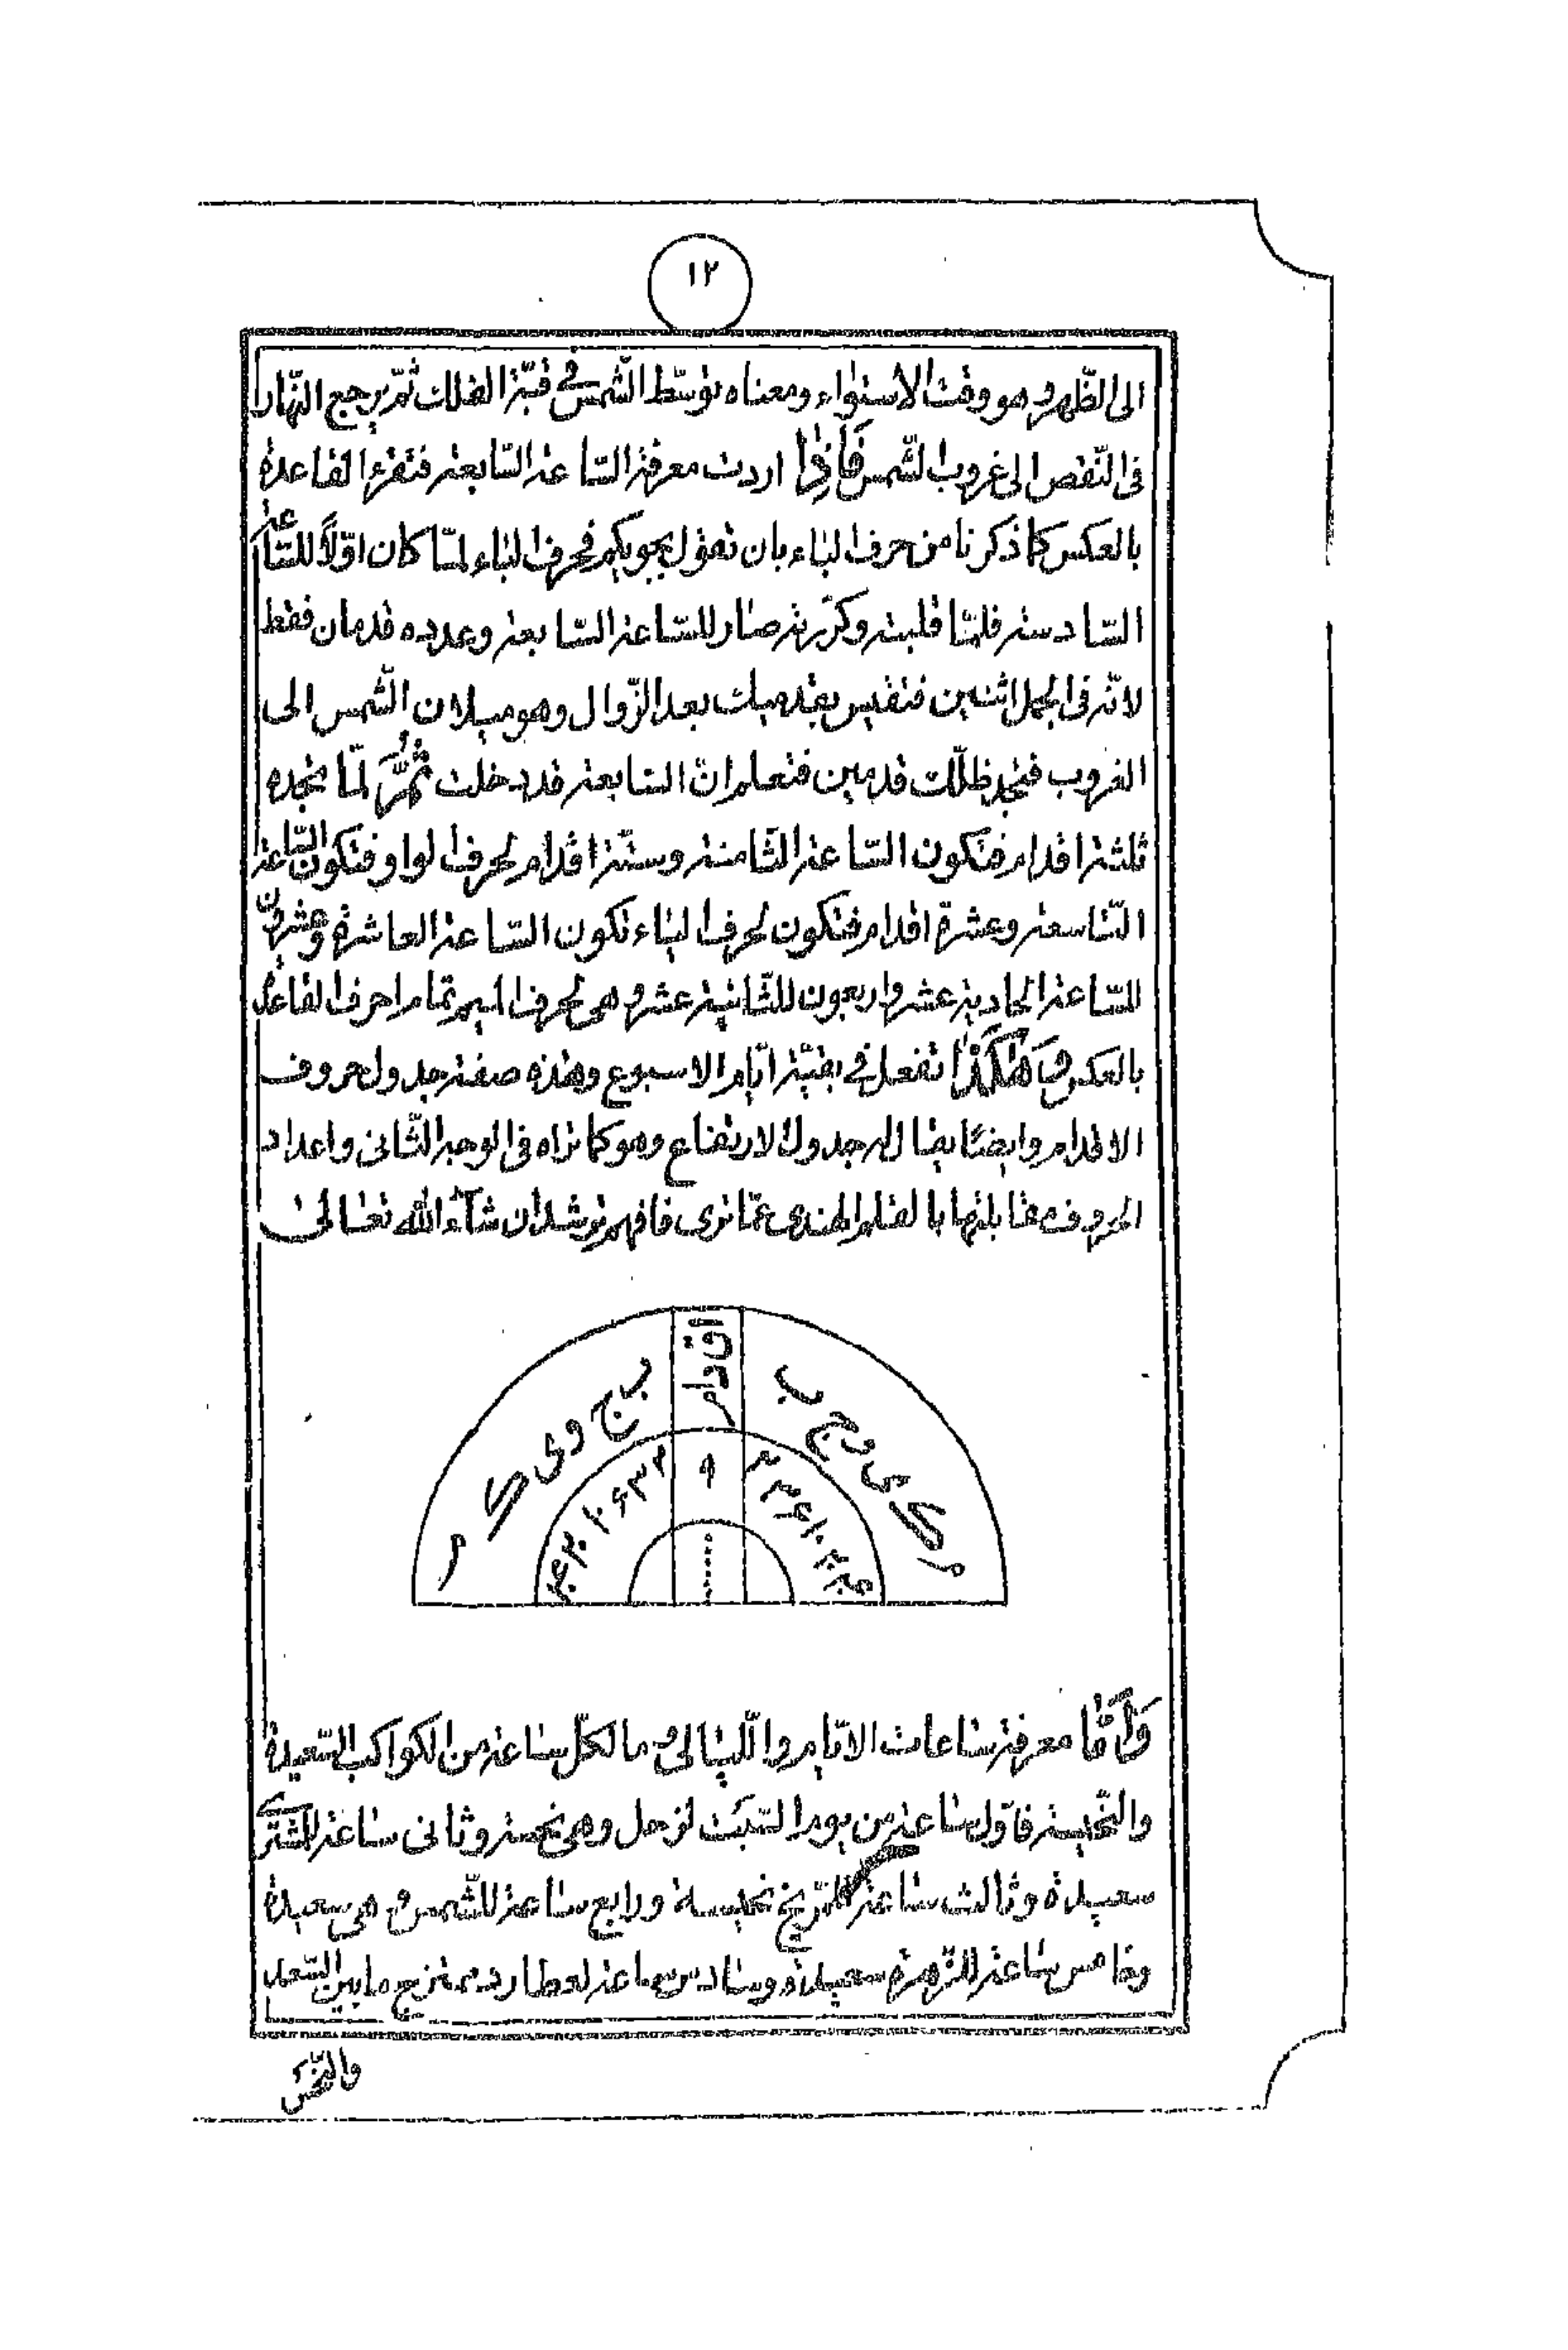 ١٢
الى الظّهر وهو وقت الاستواء ومعناه توسّط الشّمس فى قبّة الفلك ثمّ يرجع النّهار
فى النّقص الى غروب الشّمس فَاِذٰا اردت معرفة السّاعة السّابعة فتقرء القاعدة
بالعكس كما ذكرنا من حرف الباء بان تقول بجويكم فحرف الباء لمّا كان اوّلًا للسّاعة
السّادسة فلمّا قلبته وكرّرته صار للسّاعة السّابعة وعدده قدمان فقط
لانّه فى الجمل اثنين فتقيس بقدميك بعد الزّوال وهو ميلان الشّمس الى
الغروب فتجد ظلّك قدمين فتعلم انّ السّابعة قد دخلت ثُمَّ لمّا تجده
ثلثة اقدام فتكون السّاعة الثّامنة وستّة اقدام لحرف الواو فتكون السّاعة
التّاسعة وعشرة اقدام فتكون لحرف الياء تكون السّاعة العاشرة وعشرين
للسّاعة الحادية عشر واربعون للثّانية عشر وهى لحرف الميم تمام احرف القاعدة
بالعكس وَهٰكَذٰا تفعل فى بقيّة ايّام الاسبوع وهذه صفة جدول حروف
الاقدام وايضًا يقال له جدول الارتفاع وهو كما تراه فى الوجه الثّانى واعداد
الحروف مقابلتها بالقلم الهندى عمّا ترى فافهم ترشد ان شآء الله تعالى
اقدام
ب ج و ى ك م
ب ج و ى ك م
٢ ٣ ۶ ١٠ ٢٠ ۴٠
٢ ٣ ۶ ١٠ ٢٠ ۴٠
وَاَمّٰا معرفة ساعات الايّام واللّيالى وما لكلّ ساعة من الكواكب السّعيدة
والنّحيسة فاوّل ساعة من يوم السّبت لزحل وهى نحسة وثانى ساعة للمشترى
سعيدة وثالث ساعة للمرّيخ نحيسة ورابع ساعة للشّمس وهى سعيدة
وخامس ساعة للزّهرة سعيدة وسادس ساعة لعطارد ممتزج ما بين السّعد
والنّحس